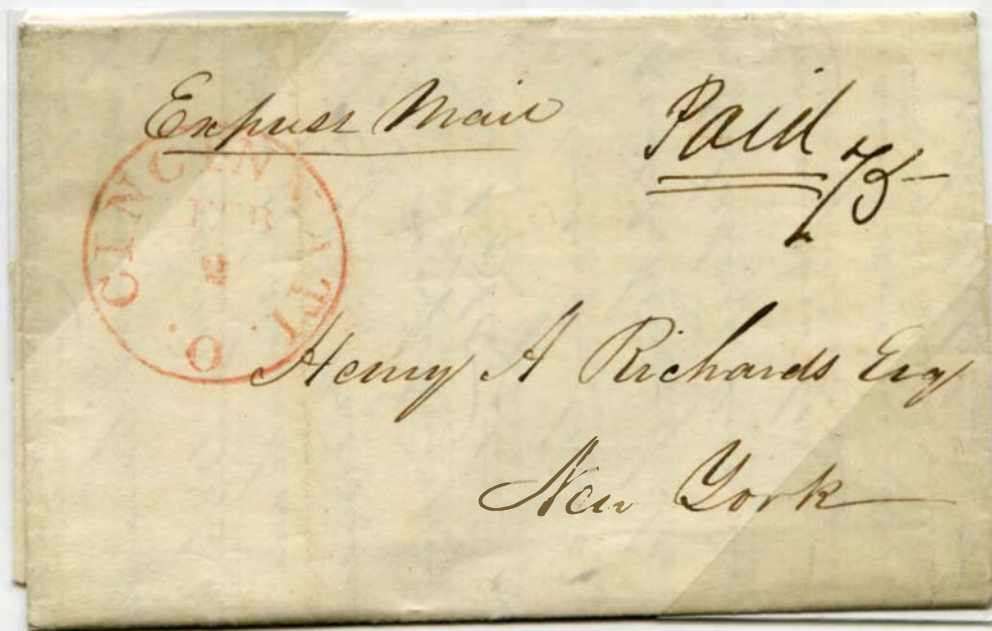 Express Mail
Paid 75
CINCINNATI O.
FEB
2
Henry A Richards Esq
New York